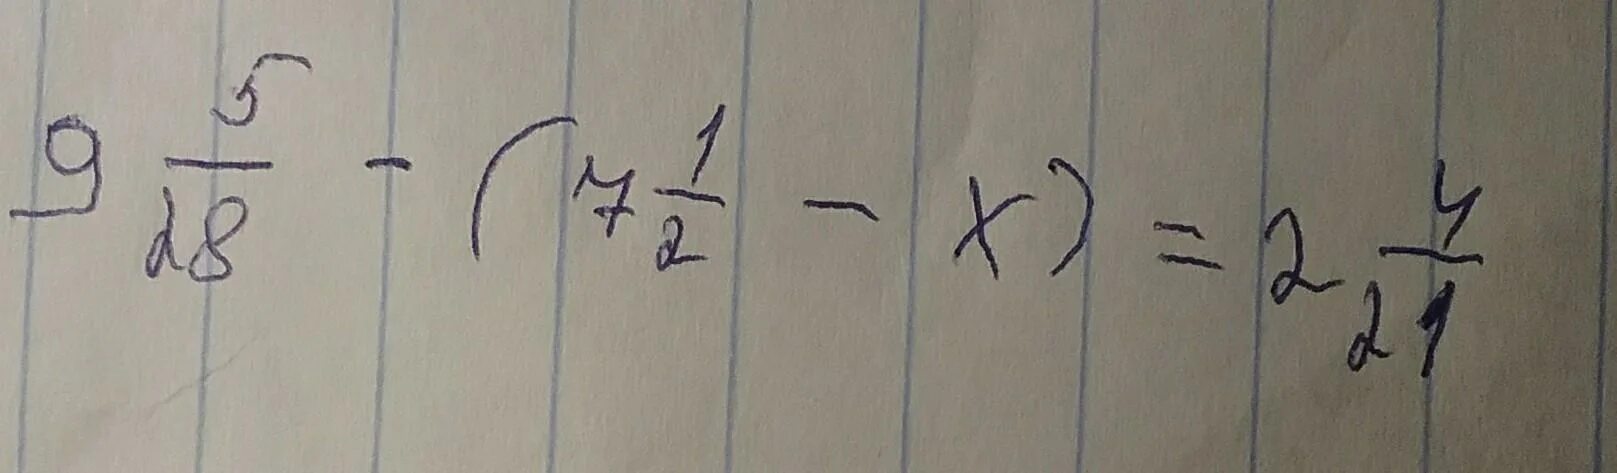 9 5/28 - (7 1/2 - x) = 2 4/21